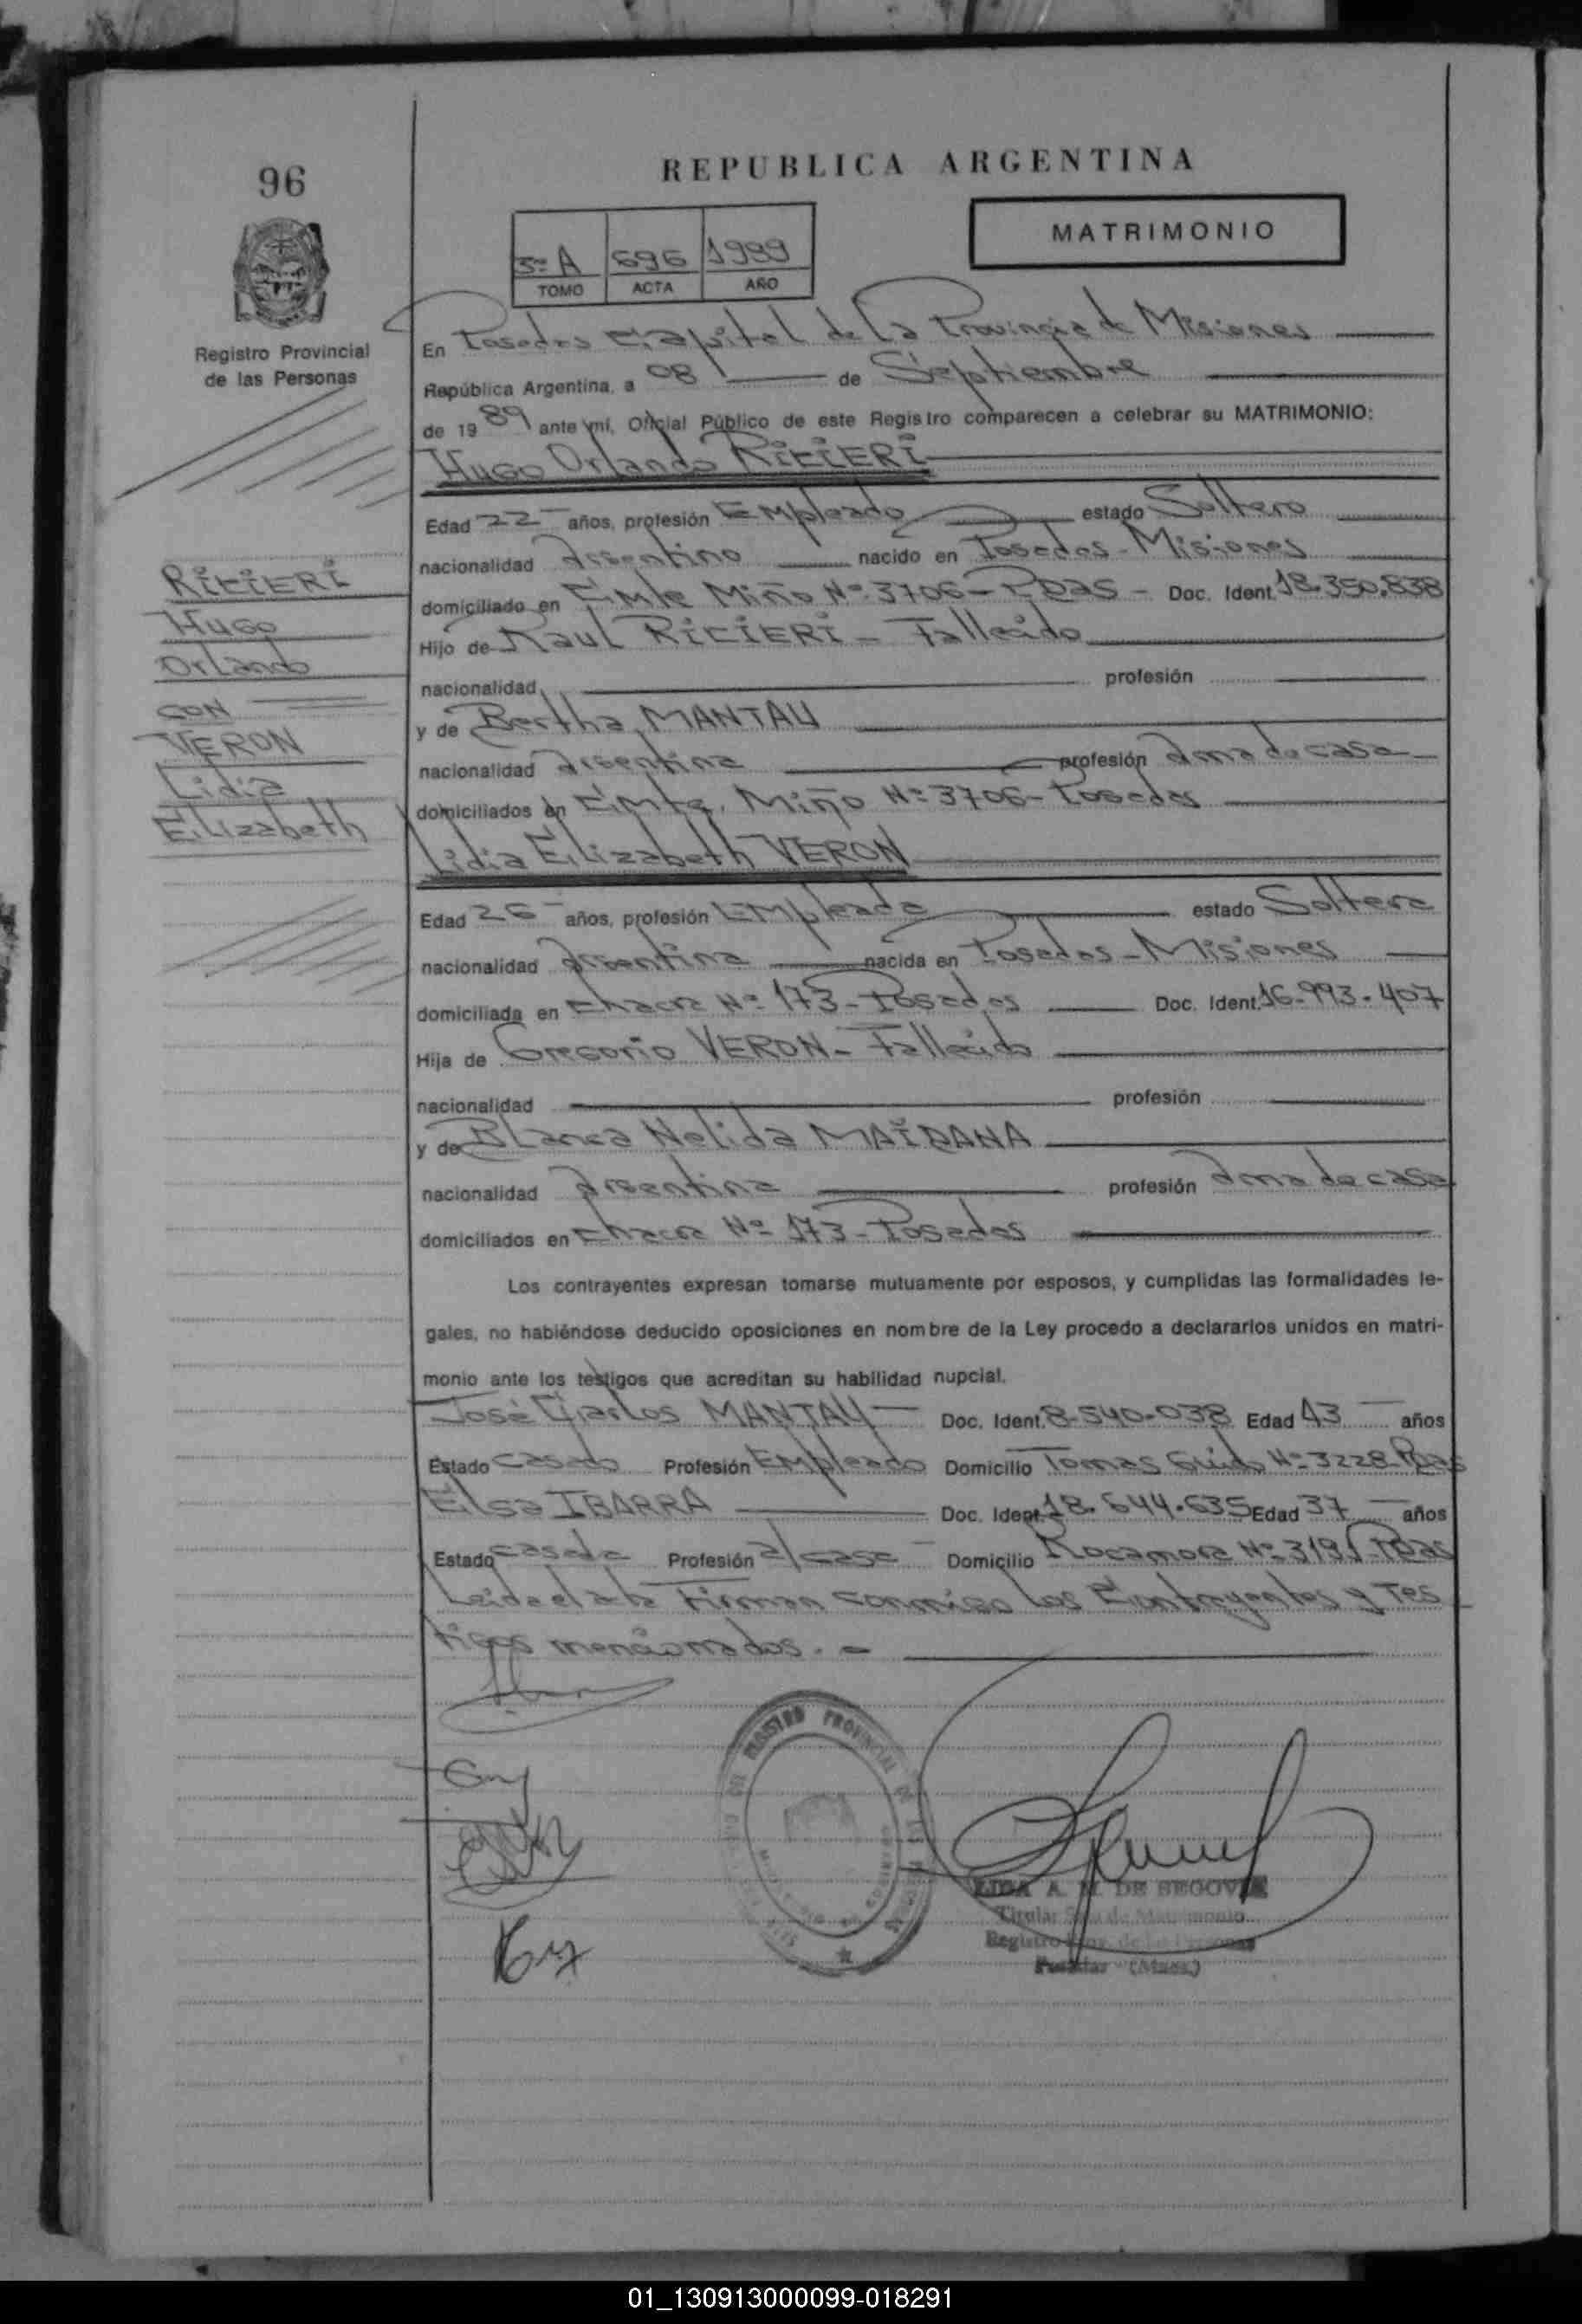 96
REPUBLICA ARGENTINA
MATRIMONIO
3º A 696 1989
TOMO ACTA AÑO
Registro Provincial
de las Personas
En Posadas Capital de La Provincia de Misiones
República Argentina, a 08 de Septiembre
de 1989 ante mí, Oficial Público de este Registro comparecen a celebrar su MATRIMONIO:
Hugo Orlando RICIERI
Edad 22 años, profesión Empleado estado Soltero
nacionalidad Argentino nacido en Posadas - Misiones
domiciliado en Cmte Miño Nº 3706 - Pdas - Doc. Ident. 18.350.838
Hijo de Raul RICIERI - Fallecido
nacionalidad profesión
y de Bertha MANTAU
nacionalidad Argentina profesión Ama de casa
domiciliados en Cmte. Miño Nº 3706 - Posadas
Lidia Elizabeth VERON
Edad 26 años, profesión Empleada estado Soltera
nacionalidad Argentina nacida en Posadas - Misiones
domiciliada en Chacra Nº 173 - Posadas Doc. Ident. 16.993.407
Hija de Gregorio VERON - Fallecido
nacionalidad profesión
y de Blanca Nelida MAIDANA
nacionalidad Argentina profesión Ama de casa
domiciliados en Chacra Nº 173 - Posadas
Los contrayentes expresan tomarse mutuamente por esposos, y cumplidas las formalidades le-
gales, no habiéndose deducido oposiciones en nombre de la Ley procedo a declararlos unidos en matri-
monio ante los testigos que acreditan su habilidad nupcial.
José Carlos MANTAU Doc. Ident. 8-540-038 Edad 43 años
Estado Casado Profesión Empleado Domicilio Tomas Guido Nº 3228 Pdas
Elsa IBARRA Doc. Ident. 18.644.635 Edad 37 años
Estado Casada Profesión a/casa Domicilio Rocamora Nº 3191 Pdas
Leida el acta Firman conmigo los Contrayentes y Tes
tigos mencionados. -
RICIERI
Hugo
Orlando
CON
VERON
Lidia
Elizabeth
REGISTRO PROVINCIAL DE LAS PERSONAS
A. M. DE SEGOVIA
Titular Sala de Matrimonio
Registro Prov. de las Personas
Posadas (Mnes.)
01_130913000099-018291